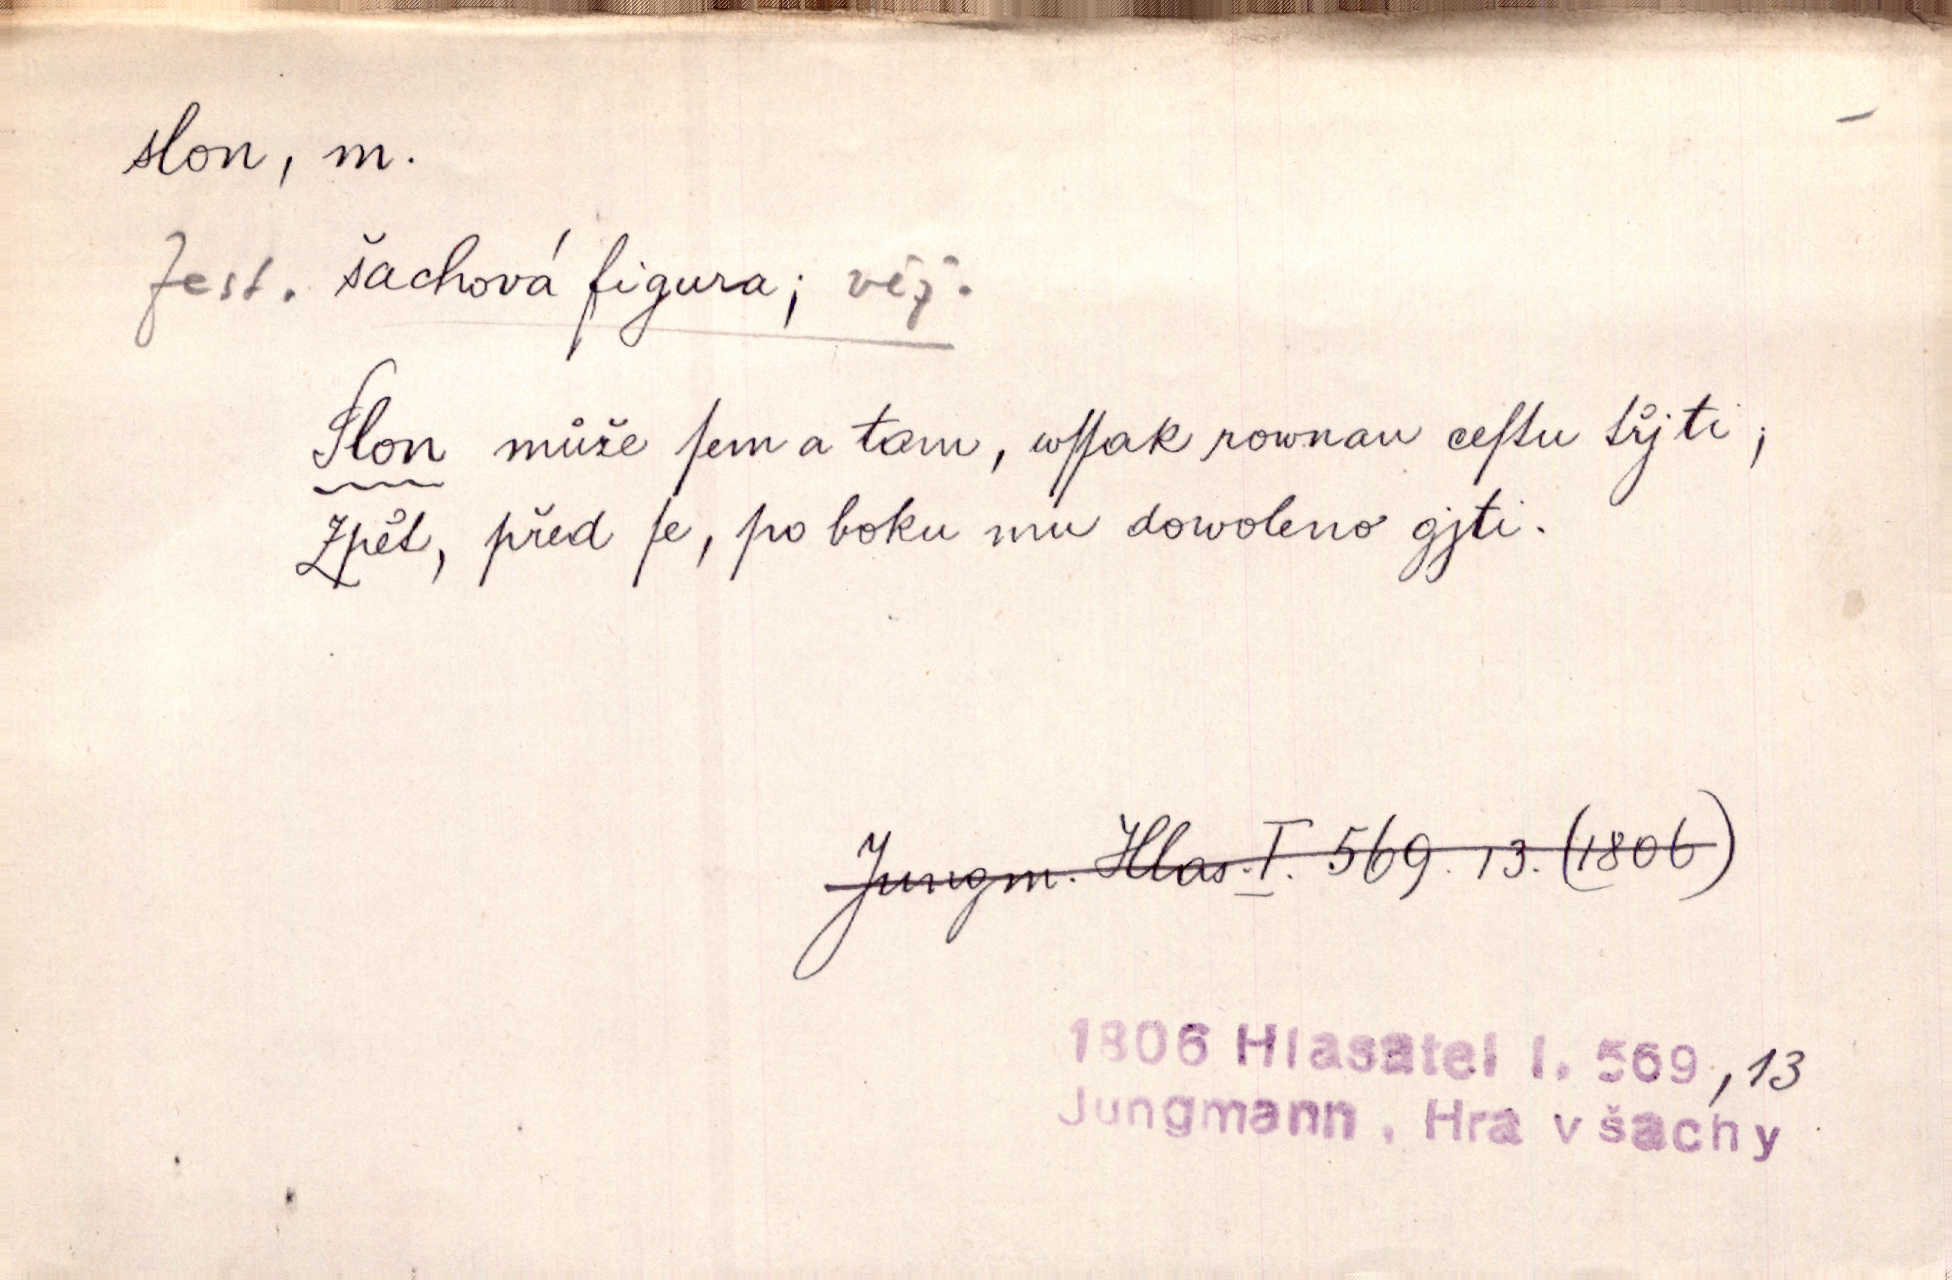 slon, m.
Jest. šachová figura; věž.
Slon může ſem a tam, wſſak rownau ceſtu třjti;
Zpět, před ſe, po boku mu dowoleno gjti.
Jungm. Hlas. I. 569. 13. (1806)
1806 Hlasatel I. 569, 13
Jungmann, Hra v šachy